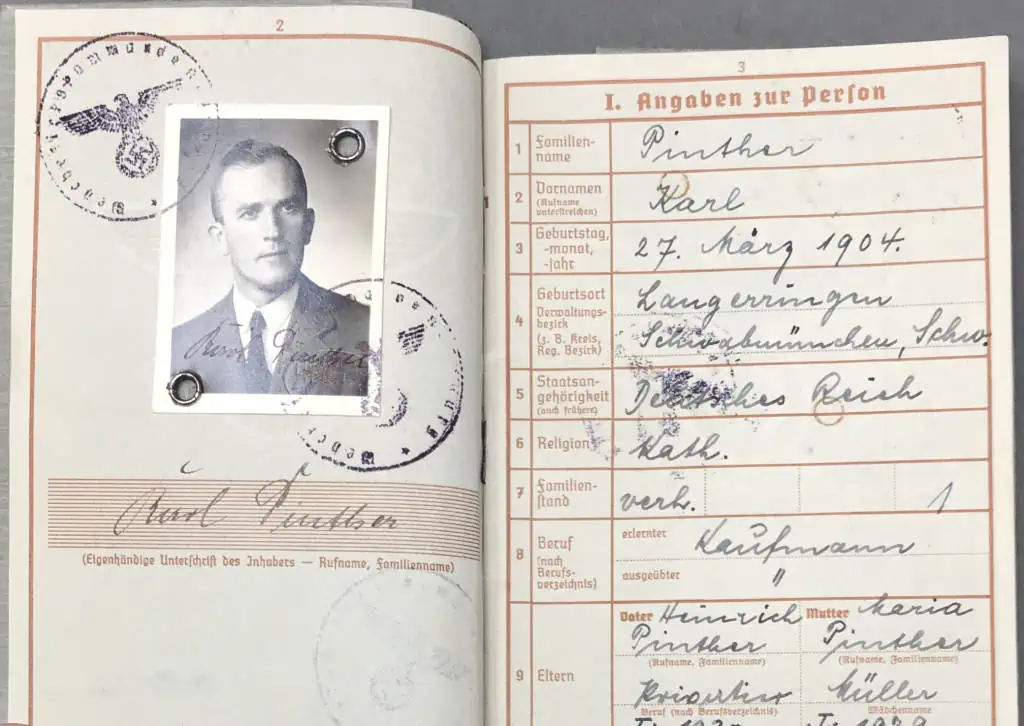 2
Karl Pinther
(Eigenhändige Unterschrift des Inhabers — Rufname, Familienname)
3
I. Angaben zur Person
1 Familien-
name
Pinther
2 Vornamen
(Rufname
unterstreichen)
Karl
3 Geburtstag,
-monat,
-jahr
27. März 1904.
4 Geburtsort
Verwaltungs-
bezirk
(z. B. Kreis,
Reg. Bezirk)
Langerringen
Schwabmünchen, Schw.
5 Staatsan-
gehörigkeit
(auch frühere)
Deutsches Reich
6 Religion
Kath.
7 Familien-
stand
verh. 1
8 Beruf
(nach
Berufs-
verzeichnis)
erlernter Kaufmann
ausgeübter "
9 Eltern
Vater Heinrich
Pinther
(Rufname, Familienname)
Beruf (nach Berufsverzeichnis)
Mutter Maria
Pinther
(Rufname, Familienname)
Müller
Mädchenname